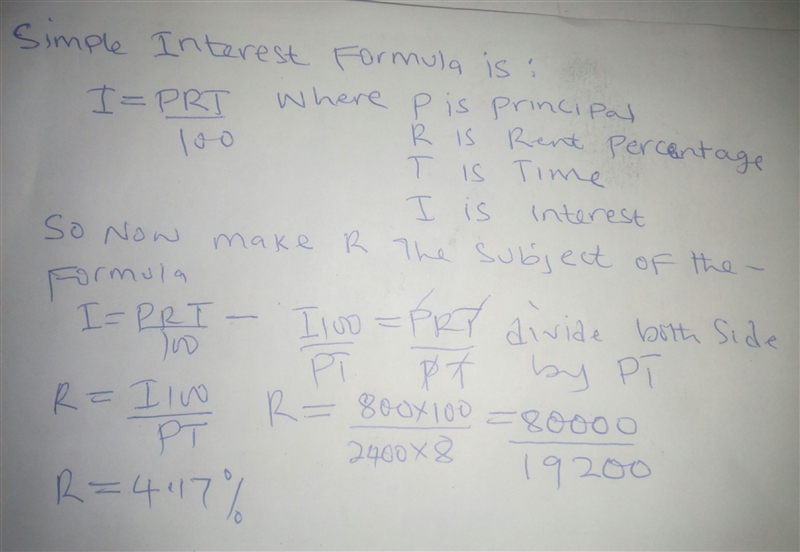 Simple Interest Formula is:
I = PRT/100 Where P is principal
R is Rent Percentage
T is Time
I is interest
So Now make R The Subject of the -
Formula
I = PRT/100 - I100/PT = PRT/PT divide both Side
by PT
R = I100/PT R = 800×100/2400×8 = 80000/19200
R = 4.17%